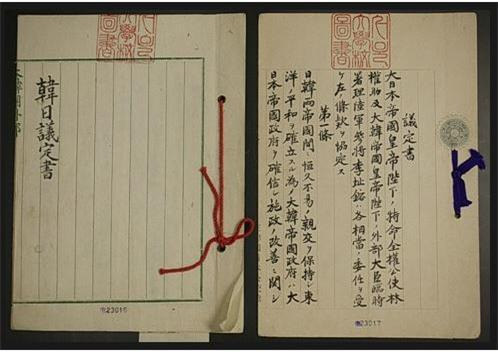 韓日議定書
23016
大學校
圖書
議定書
大日本帝國皇帝陛下ノ特命全權公使林
權助及大韓帝國皇帝陛下ノ外部大臣臨時
署理陸軍參將李址鎔ハ各相當ノ委任ヲ受
ケ左ノ條款ヲ協定ス
第一條
日韓兩帝國間ニ恒久不易ノ親交ヲ保持シ東
洋ノ平和ヲ確立スル為メ大韓帝國政府ハ大
日本帝國政府ヲ確信シ施政ノ改善ニ關シ
23017
大學校
圖書